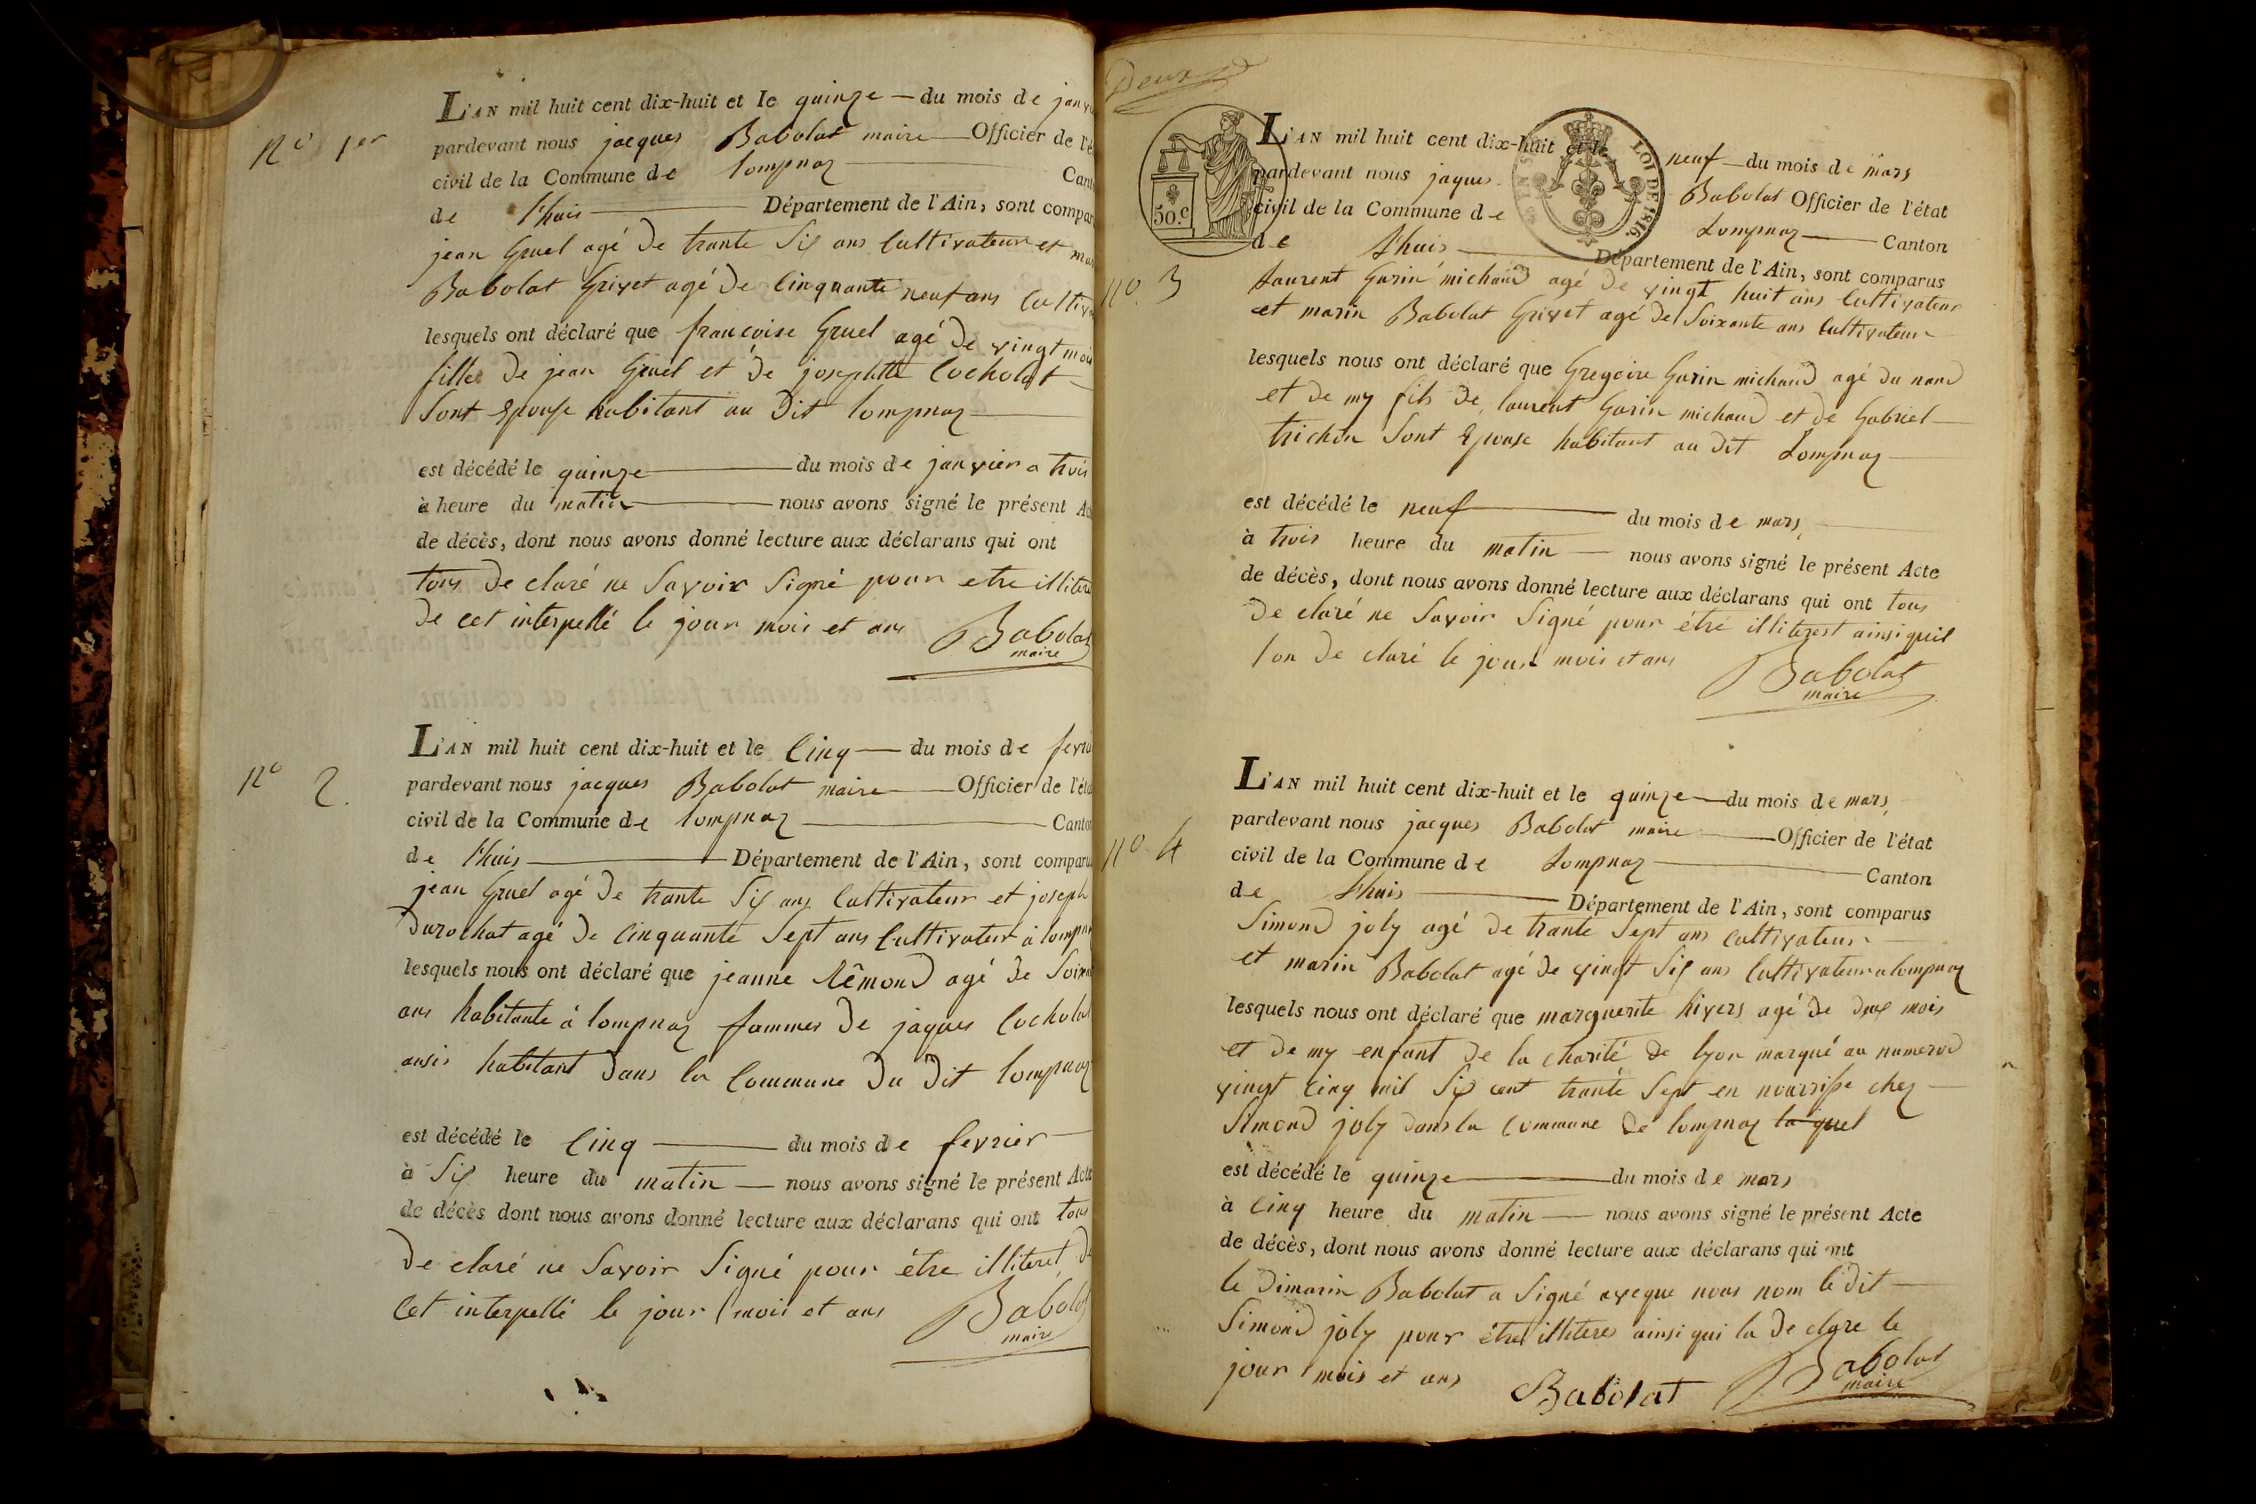 nº 1er
L'AN mil huit cent dix-huit et le quinze du mois de janv
pardevant nous jacques Babolat maire Officier de l'é
civil de la Commune de lompnaz Cant
de l'huis Département de l'Ain, sont compar
jean Gruel agé de trante Six ans Cultivateur et mar
Babolat Grivet agé de Cinquante neuf ans Cultiv
lesquels ont déclaré que francoise Gruel agé de vingt mois
fille de jean Gruel et de josephtte Cocholat
Sont Epouse habitant au Dit lompnaz
est décédé le quinze du mois de janvier a trois
à heure du matin nous avons signé le présent Ac
de décès, dont nous avons donné lecture aux déclarans qui ont
tous De claré ne Savoir Signé pour etre illitere
de cet interpellé le jour mois et ans Babolat
maire
nº 2.
L'AN mil huit cent dix-huit et le Cinq du mois de fevri
pardevant nous jacques Babolat maire Officier de l'éta
civil de la Commune de lompnaz Canton
de l'huis Département de l'Ain, sont comparu
jean Gruel agé de trante Six ans Cultivateur et joseph
Durochat agé de Cinquante Sept ans Cultivateur à lompna
lesquels nous ont déclaré que jeanne Rêmond agé de Soixa
ans habitante à lompnaz fammes de jaques Cocholat
ausis habitant dans la Commune du dit lompnaz
est décédé le Cinq du mois de fevrier
à Six heure du matin nous avons signé le présent Acte
de décès dont nous avons donné lecture aux déclarans qui ont tous
De claré ne Savoir Signé pour être illiteret d
Cet interpellé le jour mois et ans Babolat
maire
Deux
50.c
LOI DE 1816.
nº 3
L'AN mil huit cent dix-huit et le neuf du mois de mars
pardevant nous jaques Babolat Officier de l'état
civil de la Commune de Lompnaz Canton
de l'huis Département de l'Ain, sont comparus
Laurent Garin michaud agé de vingt huit ans Cultivateur
et marin Babolat Grivet agé de Soixante ans Cultivateur
lesquels nous ont déclaré que Gregoire Garin michaud agé du nand
et de my fils de laurent Garin michaud et de Gabriel
trichon Sont Epouse habitant au dit Lompnaz
est décédé le neuf du mois de mars
à trois heure du matin nous avons signé le présent Acte
de décès, dont nous avons donné lecture aux déclarans qui ont tous
De claré ne Savoir Signé pour être illiterest ainsi quil
lon De claré le jour mois et ans Babolat
maire
nº 4
L'AN mil huit cent dix-huit et le quinze du mois de mars
pardevant nous jacques Babolat maire Officier de l'état
civil de la Commune de Lompnaz Canton
de l'huis Département de l'Ain, sont comparus
Simond joly agé de trante Sept ans cultivateur
et marin Babolat agé de vingt Six ans Cultivateur a lompnaz
lesquels nous ont déclaré que marguerite hivers agé de mois
et de my enfant de la charité de lyon marqué au numerod
vingt Cinq mil Six cent trante Sept en nourrisse chez
Simond joly dans la Commune de lompnaz la quel
est décédé le quinze du mois de mars
à Cinq heure du matin nous avons signé le présent Acte
de décès, dont nous avons donné lecture aux déclarans qui ont
le dimarin Babolat a Signé aveque nous nom le dit
Simond joly pour être illiteres ainsi qui la De clare le
jour mois et ans Babolat Babolat
maire